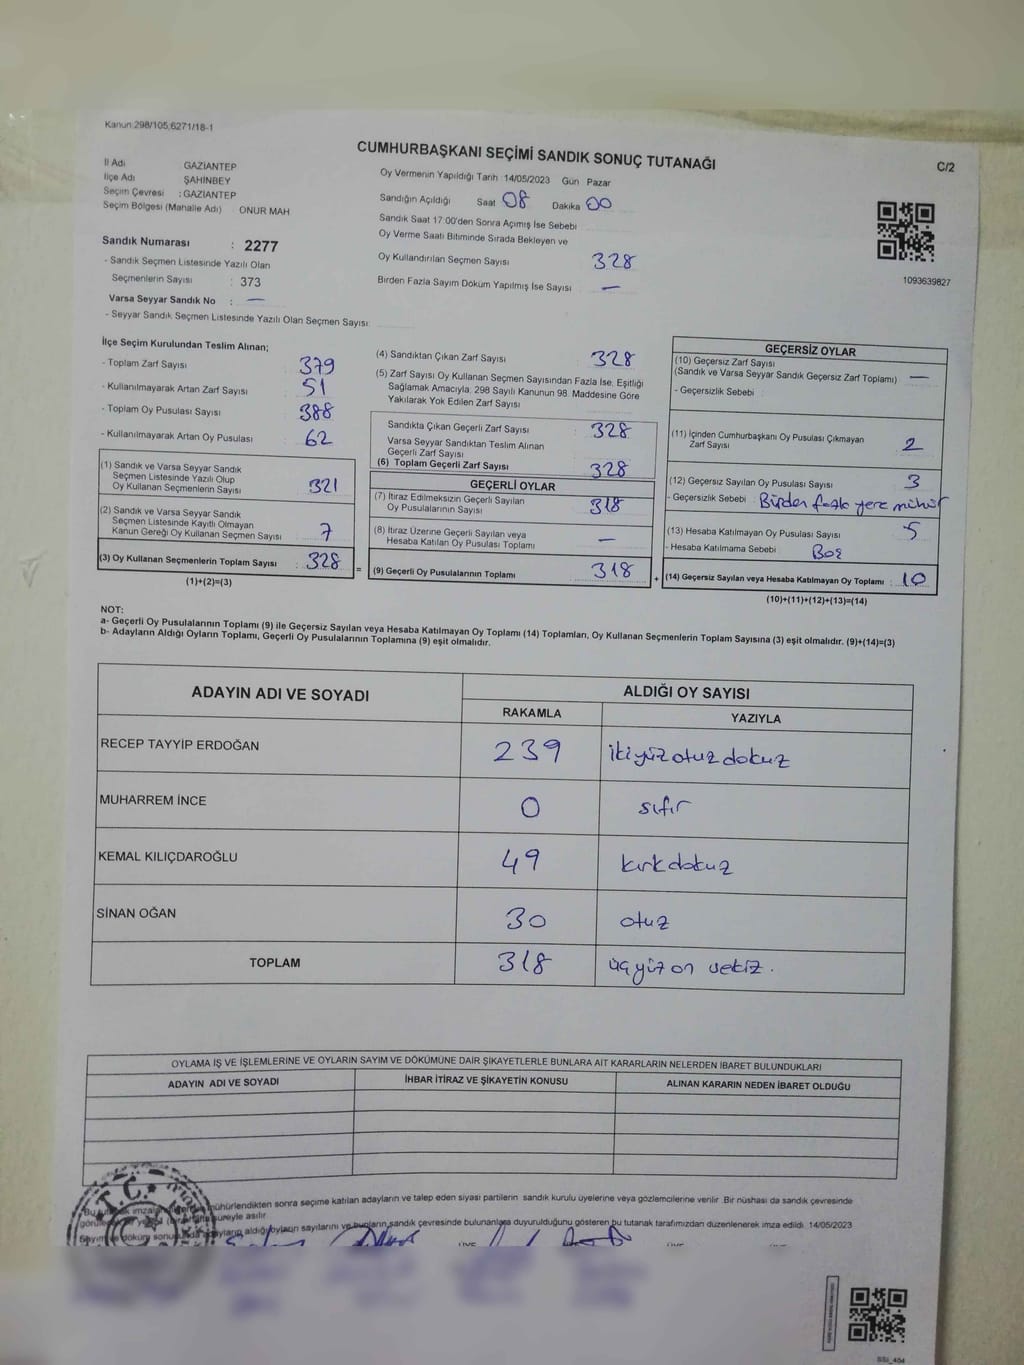 Kanun 298/105,6271/18-1
CUMHURBAŞKANI SEÇİMİ SANDIK SONUÇ TUTANAĞI
C/2
İl Adı GAZİANTEP
İlçe Adı ŞAHİNBEY
Seçim Çevresi : GAZİANTEP
Seçim Bölgesi (Mahalle Adı) ONUR MAH
Oy Vermenin Yapıldığı Tarih 14/05/2023 Gün Pazar
Sandığın Açıldığı Saat 08 Dakika 00
Sandık Saat 17:00'den Sonra Açımış İse Sebebi
Oy Verme Saati Bitiminde Sırada Bekleyen ve
Oy Kullandırılan Seçmen Sayısı 328
Birden Fazla Sayım Döküm Yapılmış İse Sayısı —
1093639827
Sandık Numarası : 2277
- Sandık Seçmen Listesinde Yazılı Olan
Seçmenlerin Sayısı : 373
Varsa Seyyar Sandık No : —
- Seyyar Sandık Seçmen Listesinde Yazılı Olan Seçmen Sayısı:
İlçe Seçim Kurulundan Teslim Alınan;
- Toplam Zarf Sayısı : 379
- Kullanılmayarak Artan Zarf Sayısı : 51
- Toplam Oy Pusulası Sayısı : 388
- Kullanılmayarak Artan Oy Pusulası : 62
(1) Sandık ve Varsa Seyyar Sandık
Seçmen Listesinde Yazılı Olup
Oy Kullanan Seçmenlerin Sayısı : 321
(2) Sandık ve Varsa Seyyar Sandık
Seçmen Listesinde Kayıtlı Olmayan
Kanun Gereği Oy Kullanan Seçmen Sayısı : 7
(3) Oy Kullanan Seçmenlerin Toplam Sayısı : 328
(1)+(2)=(3)
(4) Sandıktan Çıkan Zarf Sayısı 328
(5) Zarf Sayısı Oy Kullanan Seçmen Sayısından Fazla İse, Eşitliği
Sağlamak Amacıyla, 298 Sayılı Kanunun 98. Maddesine Göre
Yakılarak Yok Edilen Zarf Sayısı
Sandıkta Çıkan Geçerli Zarf Sayısı 328
Varsa Seyyar Sandıktan Teslim Alınan
Geçerli Zarf Sayısı
(6) Toplam Geçerli Zarf Sayısı 328
GEÇERLİ OYLAR
(7) İtiraz Edilmeksizin Geçerli Sayılan
Oy Pusulalarının Sayısı : 318
(8) İtiraz Üzerine Geçerli Sayılan veya
Hesaba Katılan Oy Pusulası Toplamı : —
= (9) Geçerli Oy Pusulalarının Toplamı : 318 +
GEÇERSİZ OYLAR
(10) Geçersiz Zarf Sayısı
(Sandık ve Varsa Seyyar Sandık Geçersiz Zarf Toplamı) —
- Geçersizlik Sebebi :
(11) İçinden Cumhurbaşkanı Oy Pusulası Çıkmayan
Zarf Sayısı 2
(12) Geçersiz Sayılan Oy Pusulası Sayısı 3
- Geçersizlik Sebebi : Birden fazla yere mühür
(13) Hesaba Katılmayan Oy Pusulası Sayısı 5
- Hesaba Katılmama Sebebi : Boş
(14) Geçersiz Sayılan veya Hesaba Katılmayan Oy Toplamı : 10
(10)+(11)+(12)+(13)=(14)
NOT:
a- Geçerli Oy Pusulalarının Toplamı (9) ile Geçersiz Sayılan veya Hesaba Katılmayan Oy Toplamı (14) Toplamları, Oy Kullanan Seçmenlerin Toplam Sayısına (3) eşit olmalıdır. (9)+(14)=(3)
b- Adayların Aldığı Oyların Toplamı, Geçerli Oy Pusulalarının Toplamına (9) eşit olmalıdır.
ADAYIN ADI VE SOYADI ALDIĞI OY SAYISI
RAKAMLA YAZIYLA
RECEP TAYYİP ERDOĞAN 239 ikiyüzotuzdokuz
MUHARREM İNCE 0 sıfır
KEMAL KILIÇDAROĞLU 49 kırkdokuz
SİNAN OĞAN 30 otuz
TOPLAM 318 üçyüz on sekiz.
OYLAMA İŞ VE İŞLEMLERİNE VE OYLARIN SAYIM VE DÖKÜMÜNE DAİR ŞİKAYETLERLE BUNLARA AİT KARARLARIN NELERDEN İBARET BULUNDUKLARI
ADAYIN ADI VE SOYADI İHBAR İTİRAZ VE ŞİKAYETİN KONUSU ALINAN KARARIN NEDEN İBARET OLDUĞU
T.C.
mühürlendikten sonra seçime katılan adayların ve talep eden siyasi partilerin sandık kurulu üyelerine veya gözlemcilerine verilir. Bir nüshası da sandık çevresinde
süreyle asılır.
aldığı oyların sayılarını ve bunların sandık çevresinde bulunanlara duyurulduğunu gösteren bu tutanak tarafımızdan düzenlenerek imza edildi. 14/05/2023